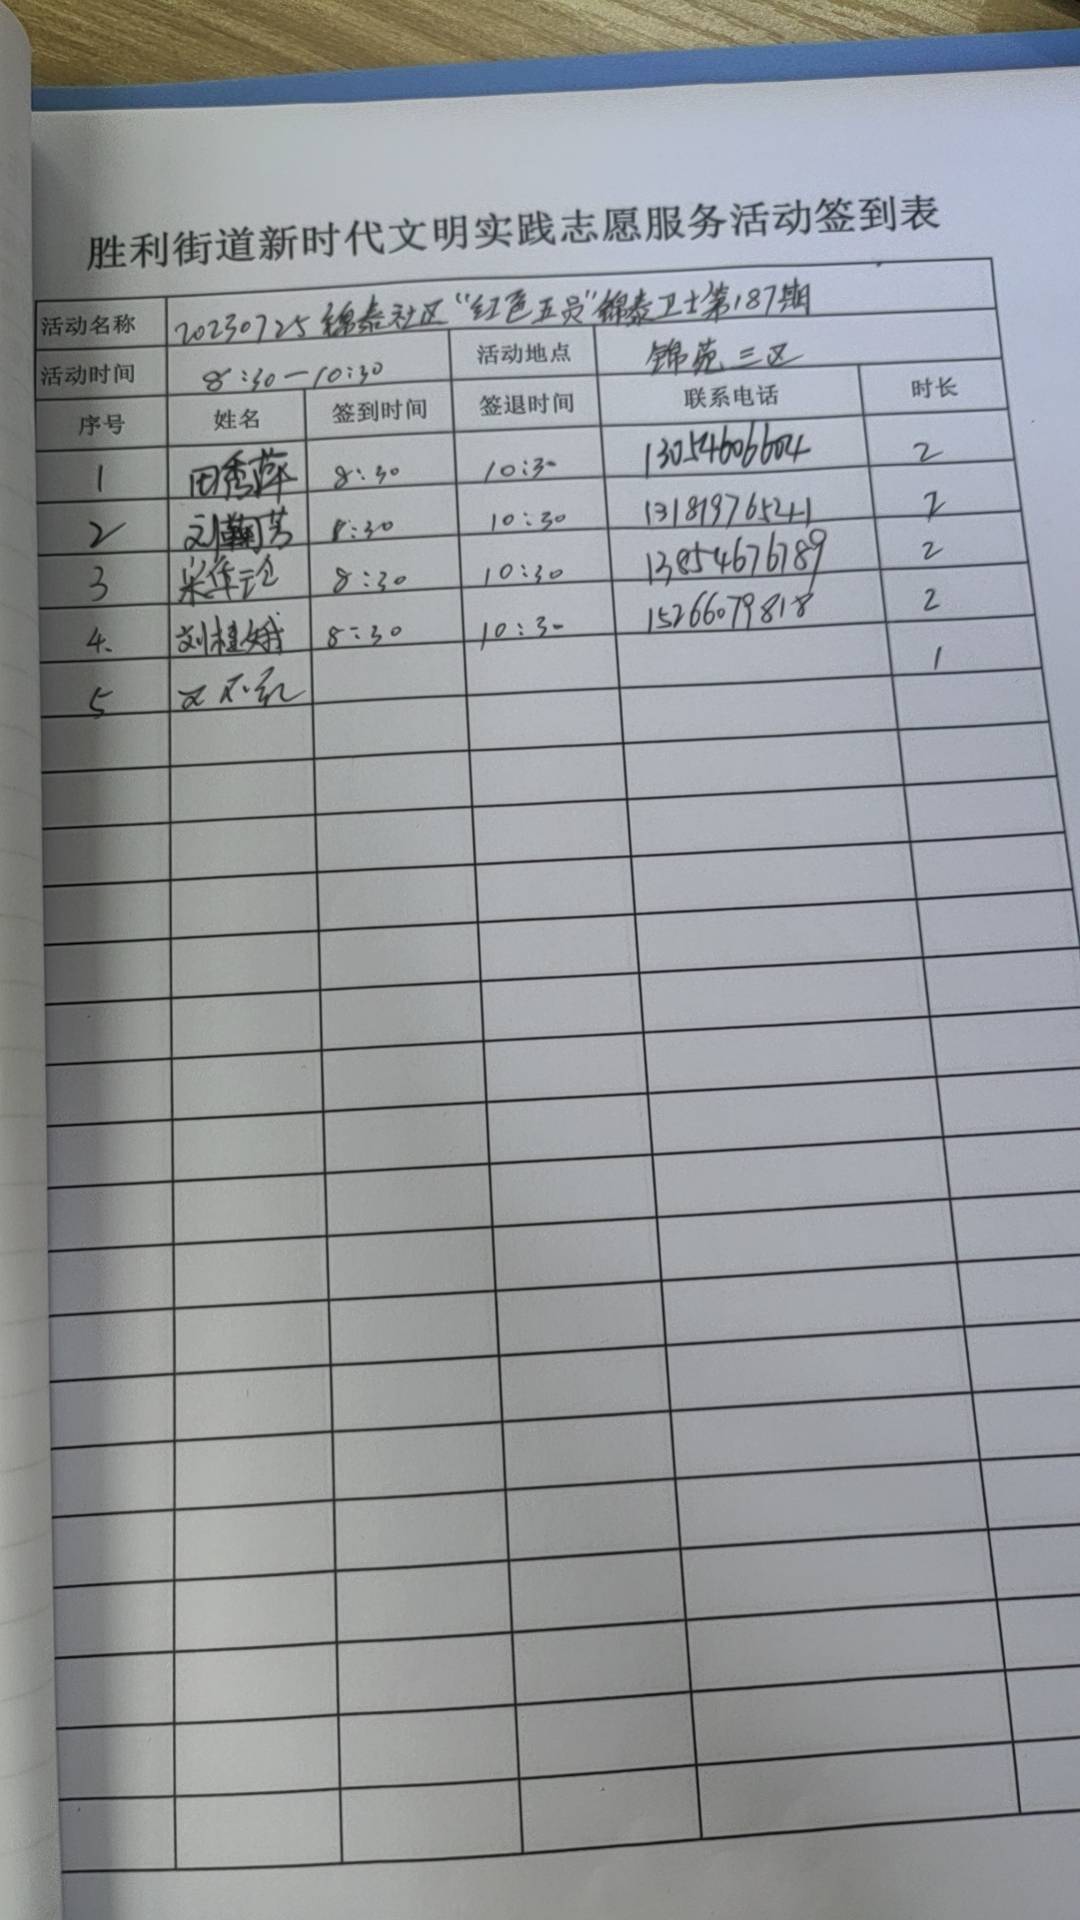 胜利街道新时代文明实践志愿服务活动签到表
活动名称 20230725锦泰社区“红色五员”锦泰卫士第187期
活动时间 8:30—10:30 活动地点 锦苑三区
序号 姓名 签到时间 签退时间 联系电话 时长
1 田秀萍 8:30 10:30 13054606604 2
2 刘菊芳 8:30 10:30 13181976524 2
3 8:30 10:30 13854676789 2
4. 刘桂娥 8:30 10:30 15266079818 2
5 1